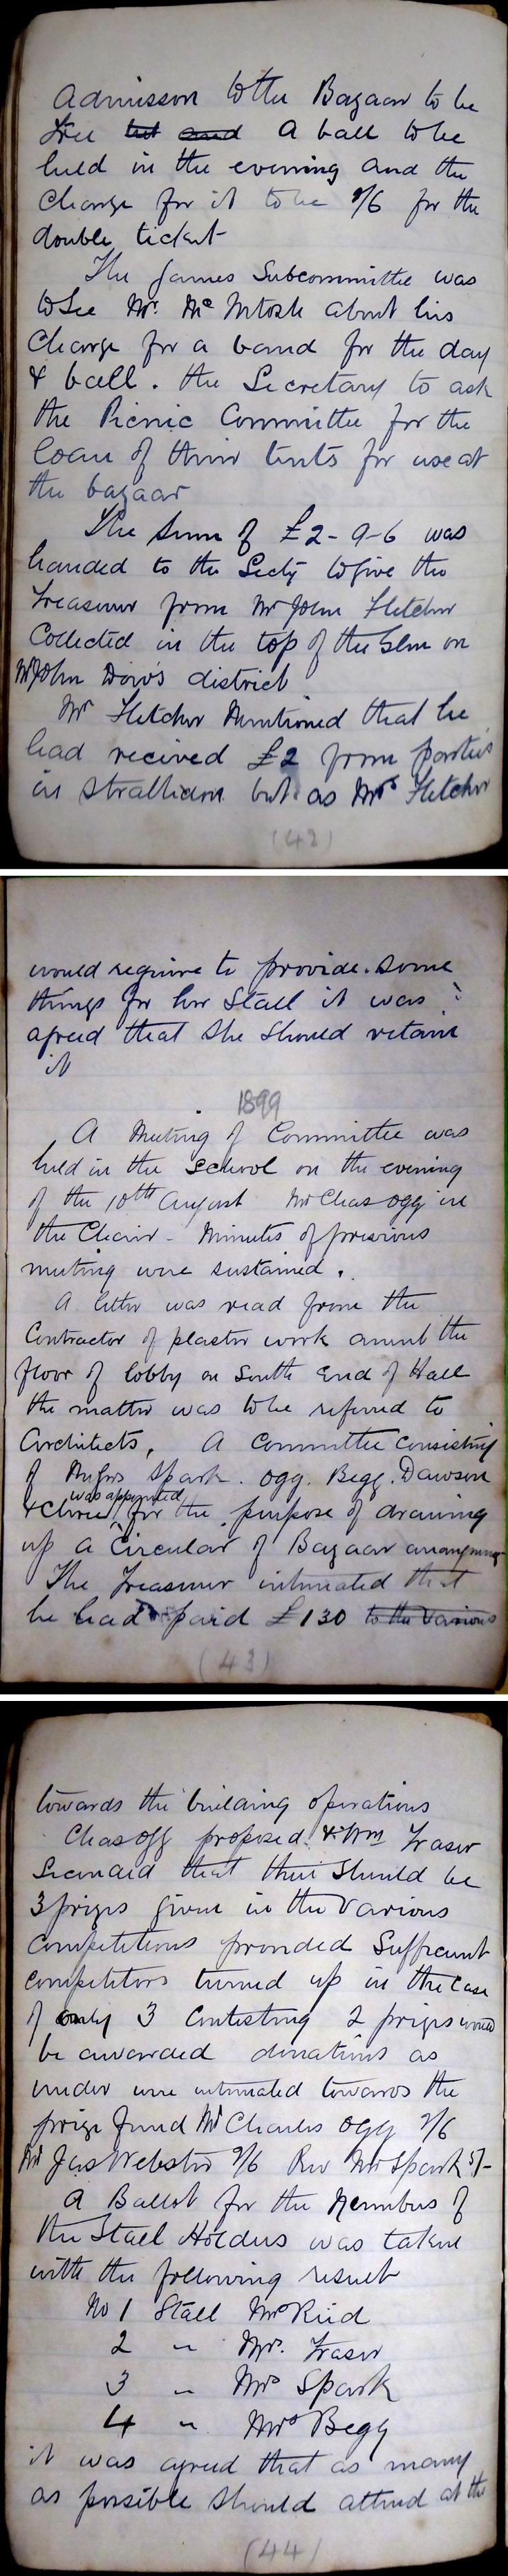 Admission to the Bazaar to be
free but and A ball to be
held in the evening and the
Charge for it to be 2/6 for the
double ticket
The Games Subcommittee was
to See Mr. McIntosh about his
Charge for a band for the day
& ball. the Secretary to ask
the Picnic Committee for the
loan of their tents for use at
the bazaar
The Sum of £2-9-6 was
handed to the Secty to give the
Treasurer from Mr John Fletcher
Collected in the top of the Glen on
Mr John Dow's district
Mr Fletcher Mentioned that he
had recived £2 from parties
in Strathdon but as Mrs Fletcher
(42)
would require to provide some
things for her Stall it was
agreed that she should retain
it
1899
A Meeting of Committee was
held in the School on the evening
of the 10th August Mr Chas Ogg in
the Chair - Minutes of previous
meeting were sustained.
A letter was read from the
Contractor of plaster work anent the
floor of lobby on South End of Hall
the matter was to be referred to
Architects, A Committee Consisting
of Messrs Spark. Ogg. Begg. Dawson
was appointed
for the purpose of drawing
up a Circular of Bazaar
The Treasurer intimated that
he had paid £130 to the Various
(43)
towards the building operations
Chas Ogg proposed & Wm Fraser
Seconded that their Should be
3 prizes given in the Various
Competitions provided Sufficient
competitors turned up in the Case
of only 3 Contesting 2 prizes would
be awarded donations as
under were intimated towards the
prize fund Mr Charles Ogg 2/6
Mr Jas Webster 2/6 Rev Mr Spark 5/-
A Ballot for the Numbers of
the Stall Holders was taken
with the following result
No 1 Stall Mrs Reid
2 " Mrs. Fraser
3 " Mrs Spark
4 " Mrs Begg
it was agreed that as many
as possible should attend at the
(44)